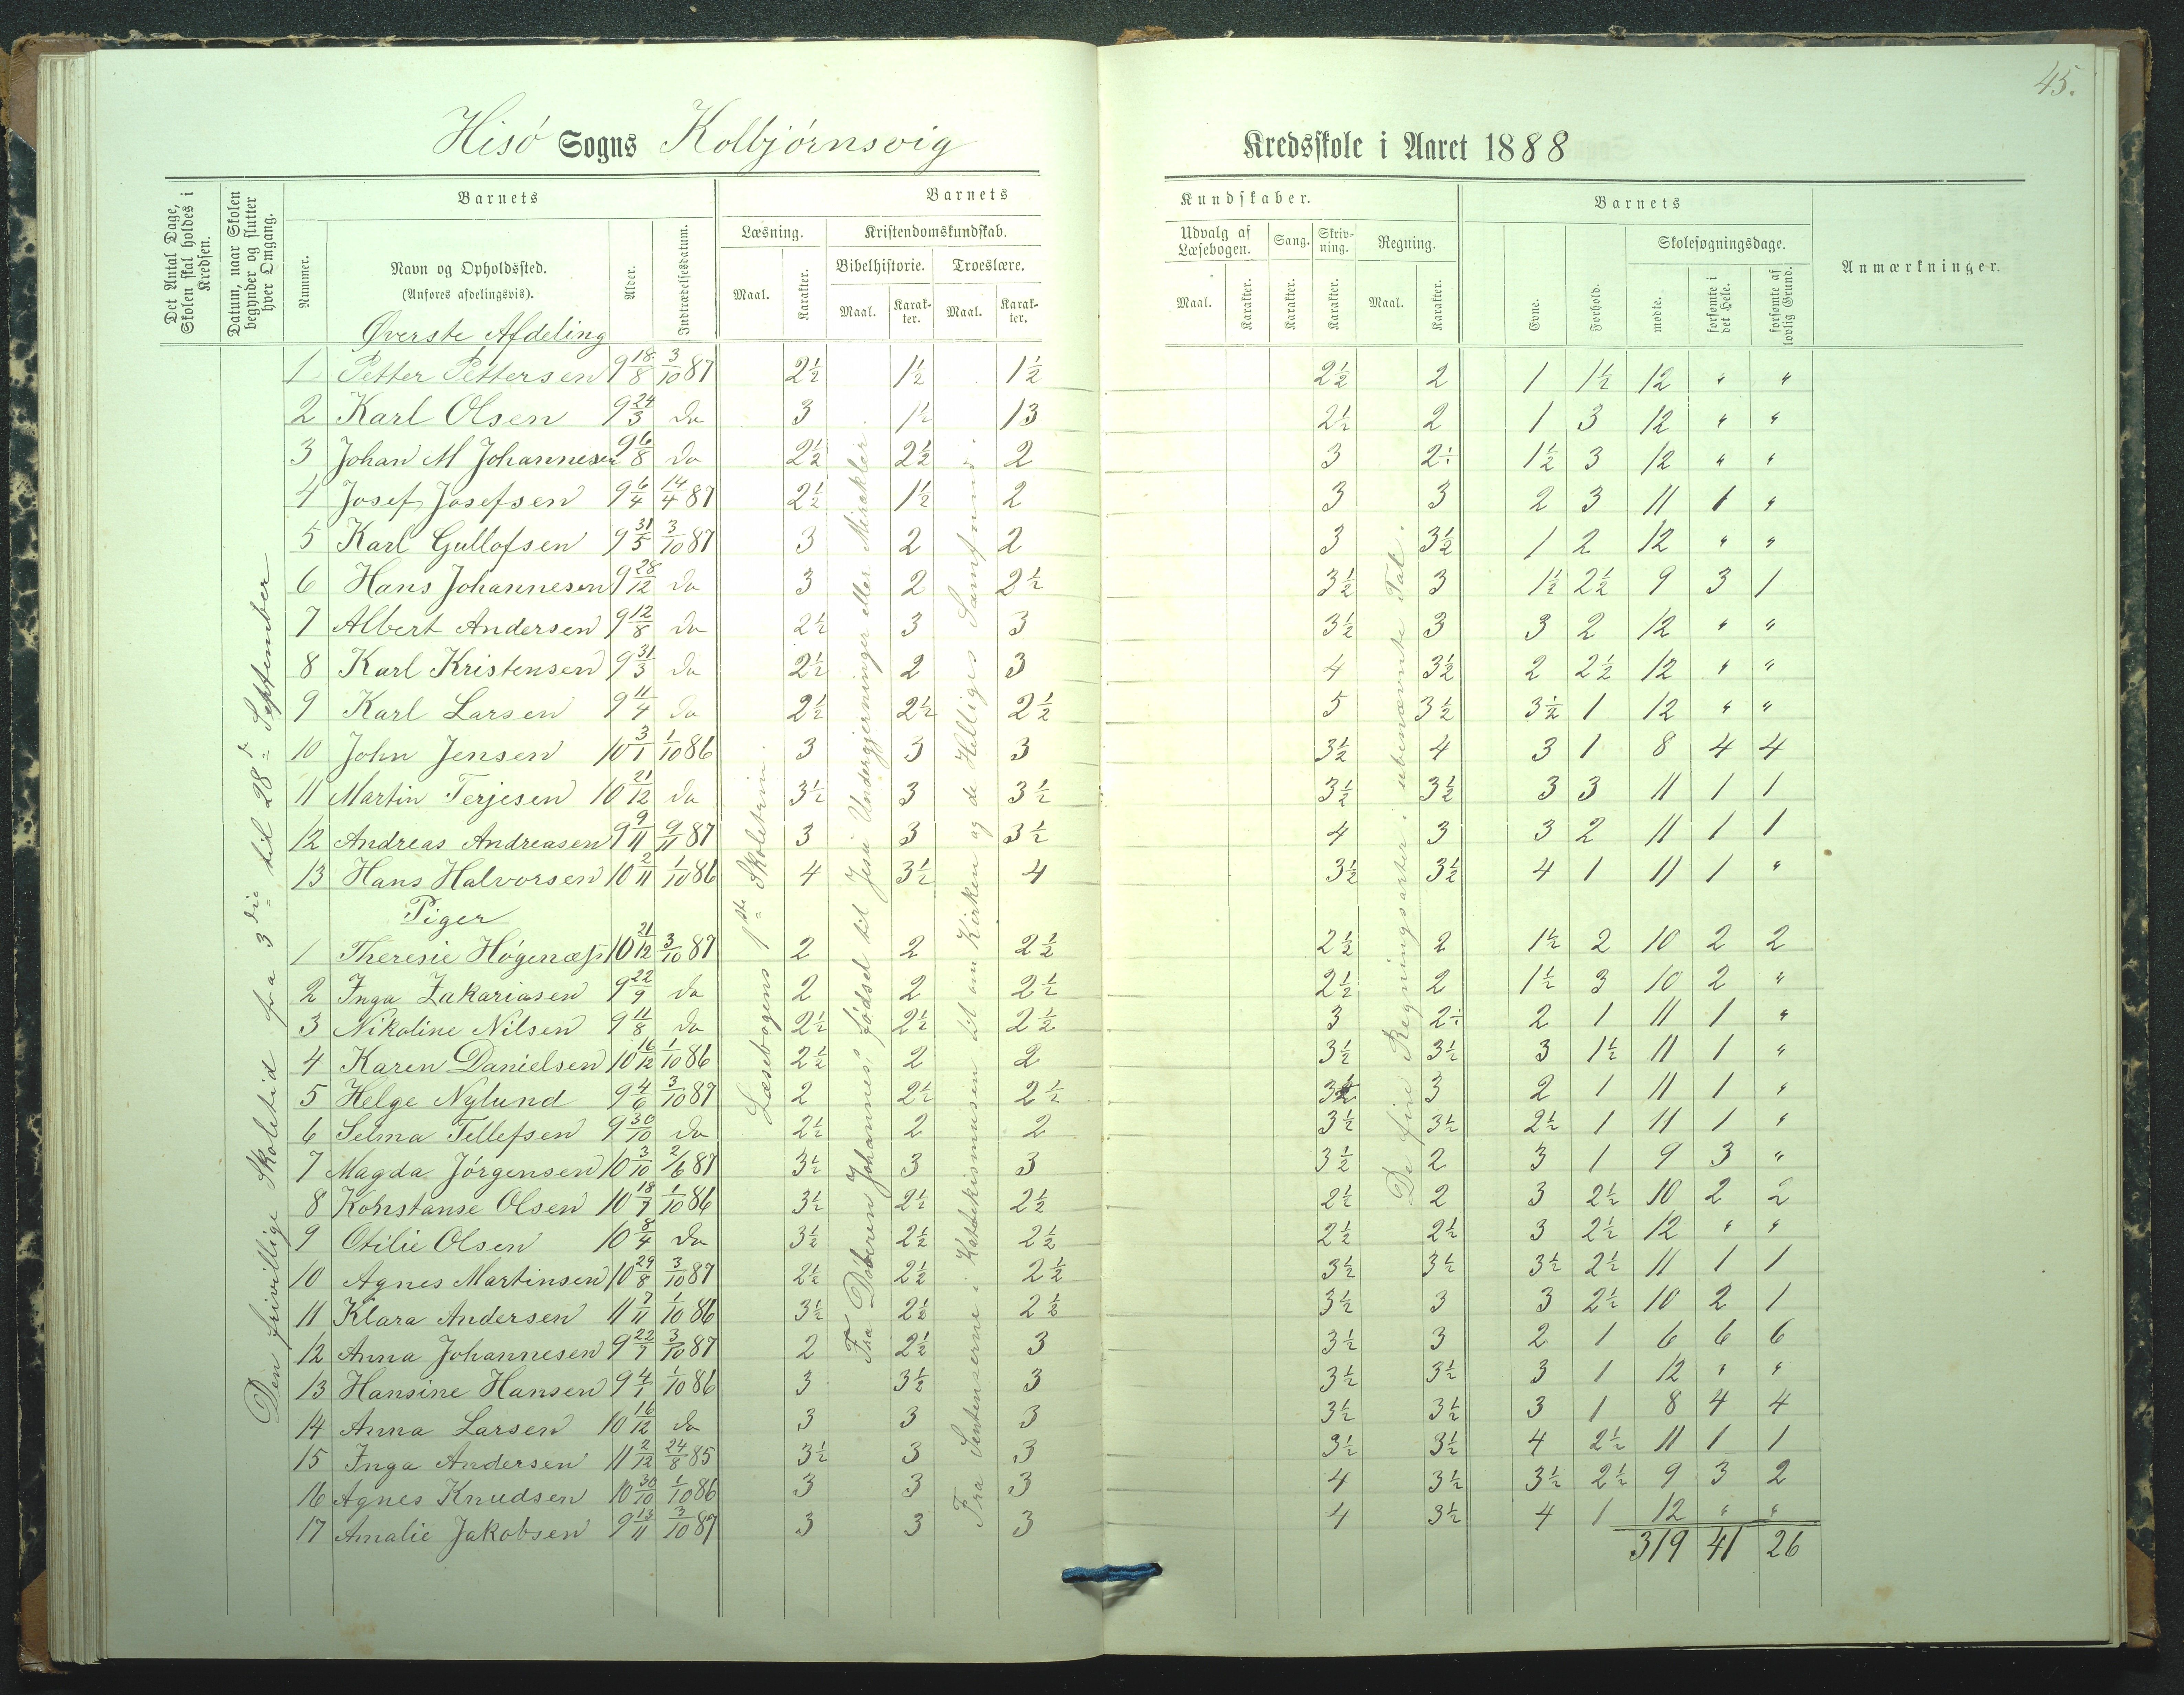 45.
Hisö Sogns Kolbjörnsvig Kredsskole i Aaret 1888
Det Antal Dage, Skolen skal holdes i Kredsen.
Datum, naar Skolen begynder og slutter hver Omgang.
Barnets
Nummer.
Navn og Opholdssted.
(Anføres afdelingsvis).
Alder.
Indtrædelsesdatum.
Barnets Kundskaber.
Læsning.
Maal.
Karakter.
Kristendomskundskab.
Bibelhistorie.
Maal.
Karakter.
Troeslære.
Maal.
Karakter.
Udvalg af Læsebogen.
Maal.
Karakter.
Sang.
Karakter.
Skrivning.
Karakter.
Regning.
Maal.
Karakter.
Barnets
Evne.
Forhold.
Skolesøgningsdage.
mødte.
forsømte i det Hele.
forsømte af lovlig Grund.
Anmærkninger.
Den frivillige Skoletid fra 3die til 28de September
Læsebogens 1ste Skoletrin.
Fra Döberen Johannes' födsel til Jesu Undergjerninger eller Mirakler.
Fra Sentenserne i Katekismusen til om Kirken og de Helliges Samfund.
De fire Regningsarter i ubenævnte Tal.
Øverste Afdeling
1 Petter Pettersen 9 18/8 3/10 87 2½ 1½ 1½ 2½ 2 1 1½ 12 " "
2 Karl Olsen 9 24/3 do 3 1½ 13 2½ 2 1 3 12 " "
3 Johan M Johannesen 9 6/8 do 2½ 2½ 2 3 2½ 1½ 3 12 " "
4 Josef Josefsen 9 6/4 14/4 87 2½ 1½ 2 3 3 2 3 11 1 "
5 Karl Gullofsen 9 31/5 3/10 87 3 2 2 3 3½ 1 2 12 " "
6 Hans Johannesen 9 28/12 do 3 2 2½ 3½ 3 1½ 2½ 9 3 1
7 Albert Andersen 9 12/8 do 2½ 3 3 3½ 3 3 2 12 " "
8 Karl Kristensen 9 31/3 do 2½ 2 3 4 3½ 2 2½ 12 " "
9 Karl Larsen 9 11/4 do 2½ 2½ 2½ 5 3½ 3½ 1 12 " "
10 John Jensen 10 3/1 1/10 86 3 3 3 3½ 4 3 1 8 4 4
11 Martin Terjesen 10 21/12 do 3½ 3 3½ 3½ 3½ 3 3 11 1 1
12 Andreas Andreasen 9 9/11 9/11 87 3 3 3½ 4 3 3 2 11 1 1
13 Hans Halvorsen 10 2/11 1/10 86 4 3½ 4 3½ 3½ 4 1 11 1 "
Piger
1 Theresie Högenæss 10 21/12 3/10 87 2 2 2½ 2½ 2 1½ 2 10 2 2
2 Inga Zakariasen 9 22/9 do 2 2 2½ 2½ 2 1½ 3 10 2 "
3 Nikoline Nilsen 9 11/8 do 2½ 2½ 2½ 3 2½ 2 1 11 1 "
4 Karen Danielsen 10 16/12 1/10 86 2½ 2 2 3½ 3½ 3 1½ 11 1 "
5 Helge Nylund 9 4/6 3/10 87 2 2½ 2½ 3½ 3 2 1 11 1 "
6 Selma Tellefsen 9 30/10 do 2½ 2 2 3½ 3½ 2½ 1 11 1 "
7 Magda Jörgensen 10 3/10 2/6 87 3½ 3 3 3½ 2 3 1 9 3 "
8 Konstanse Olsen 10 18/7 1/10 86 3½ 2½ 2½ 2½ 2 3 2½ 10 2 2
9 Otilie Olsen 10 8/4 do 3½ 2½ 2½ 2½ 2½ 3 2½ 12 " "
10 Agnes Martinsen 10 29/8 3/10 87 2½ 2½ 2½ 3½ 3½ 3½ 2½ 11 1 1
11 Klara Andersen 11 7/11 1/10 86 3½ 2½ 2½ 3½ 3 3 2½ 10 2 1
12 Anna Johannesen 9 22/7 3/10 87 2 2½ 3 3½ 3 2 1 6 6 6
13 Hansine Hansen 9 4/1 1/10 86 3 3½ 3 3½ 3½ 3 1 12 " "
14 Anna Larsen 10 16/12 do 3 3 3 3½ 3½ 3 1 8 4 4
15 Inga Andersen 11 2/12 24/8 85 3½ 3 3 3½ 3½ 4 2½ 11 1 1
16 Agnes Knudsen 10 30/10 1/10 86 3 3 3 4 3½ 3½ 2½ 9 3 2
17 Amalie Jakobsen 9 13/11 3/10 87 3 3 3 4 3½ 4 1 12 " "
319 41 26